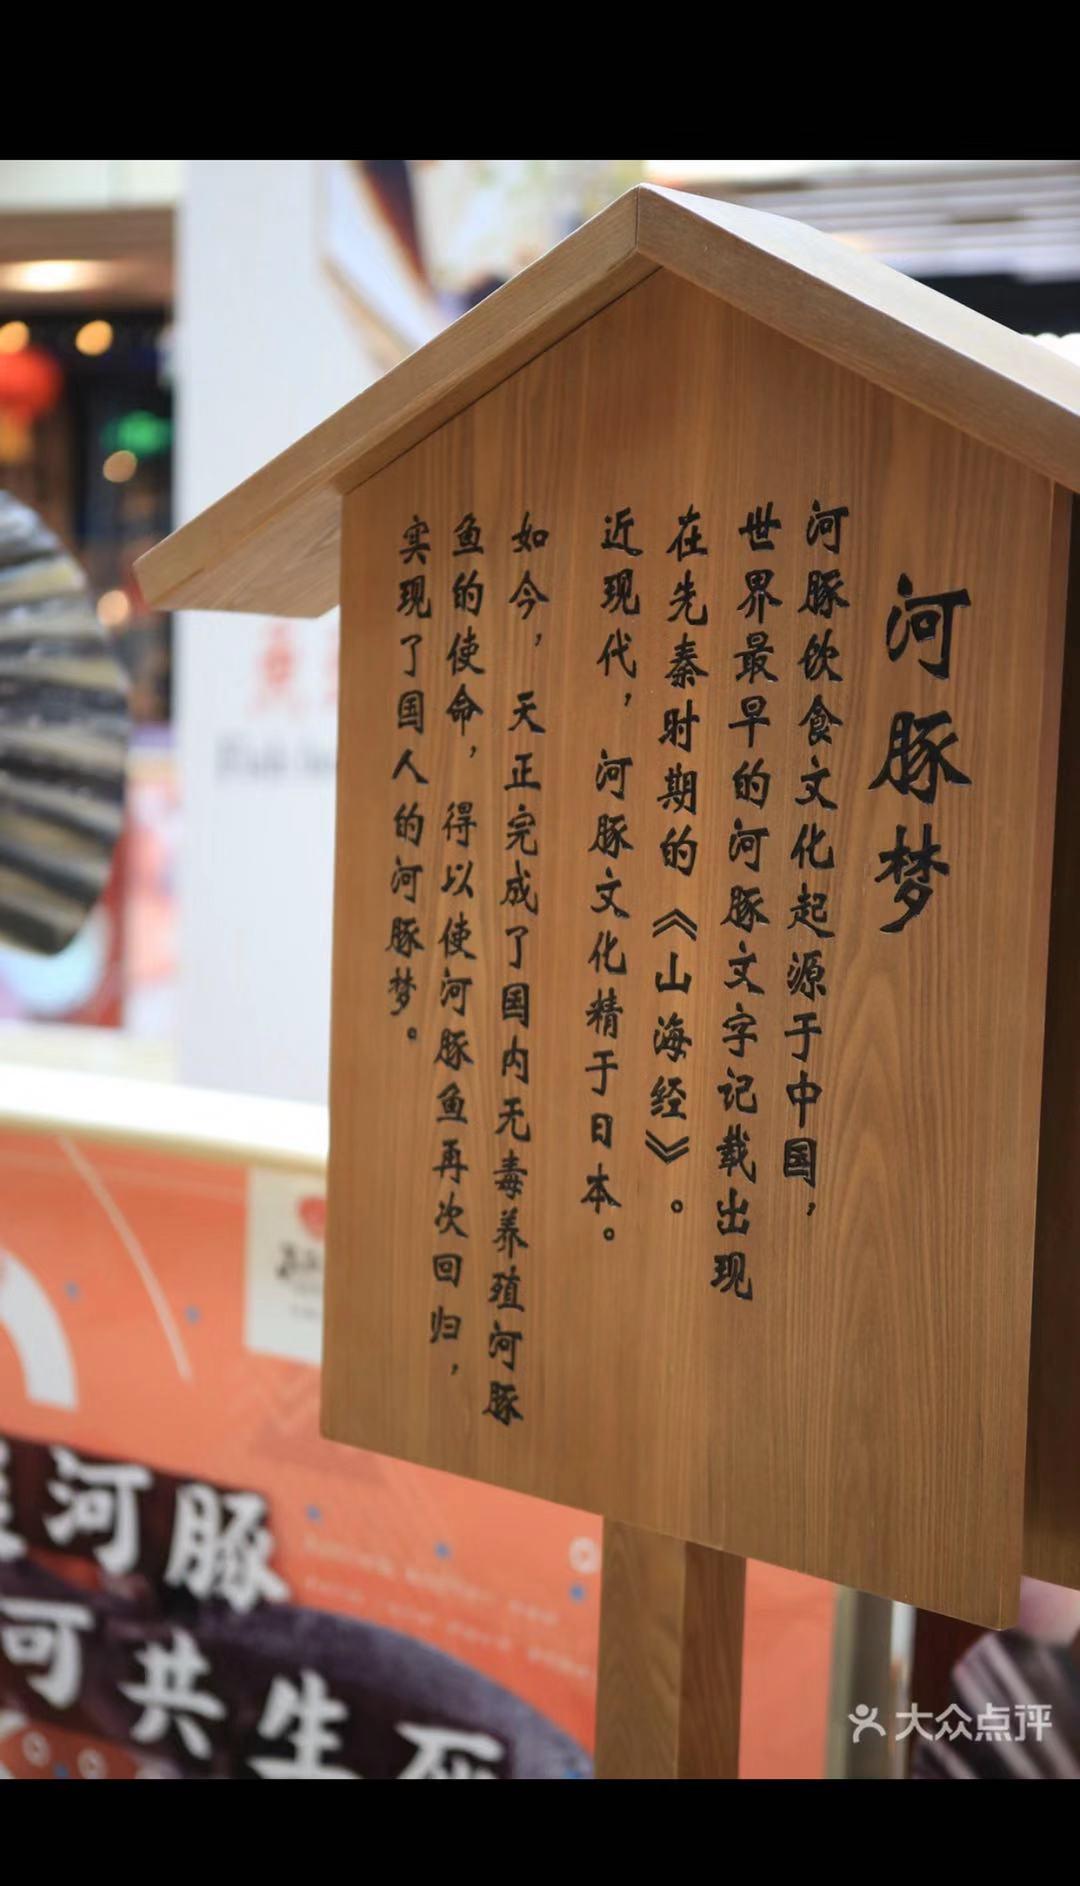 河豚梦
河豚饮食文化起源于中国，
世界最早的河豚文字记载出现
在先秦时期的《山海经》。
近现代，河豚文化精于日本。
如今，天正完成了国内无毒养殖河豚
鱼的使命，得以使河豚鱼再次回归，
实现了国人的河豚梦。
河豚
可共生死
大众点评